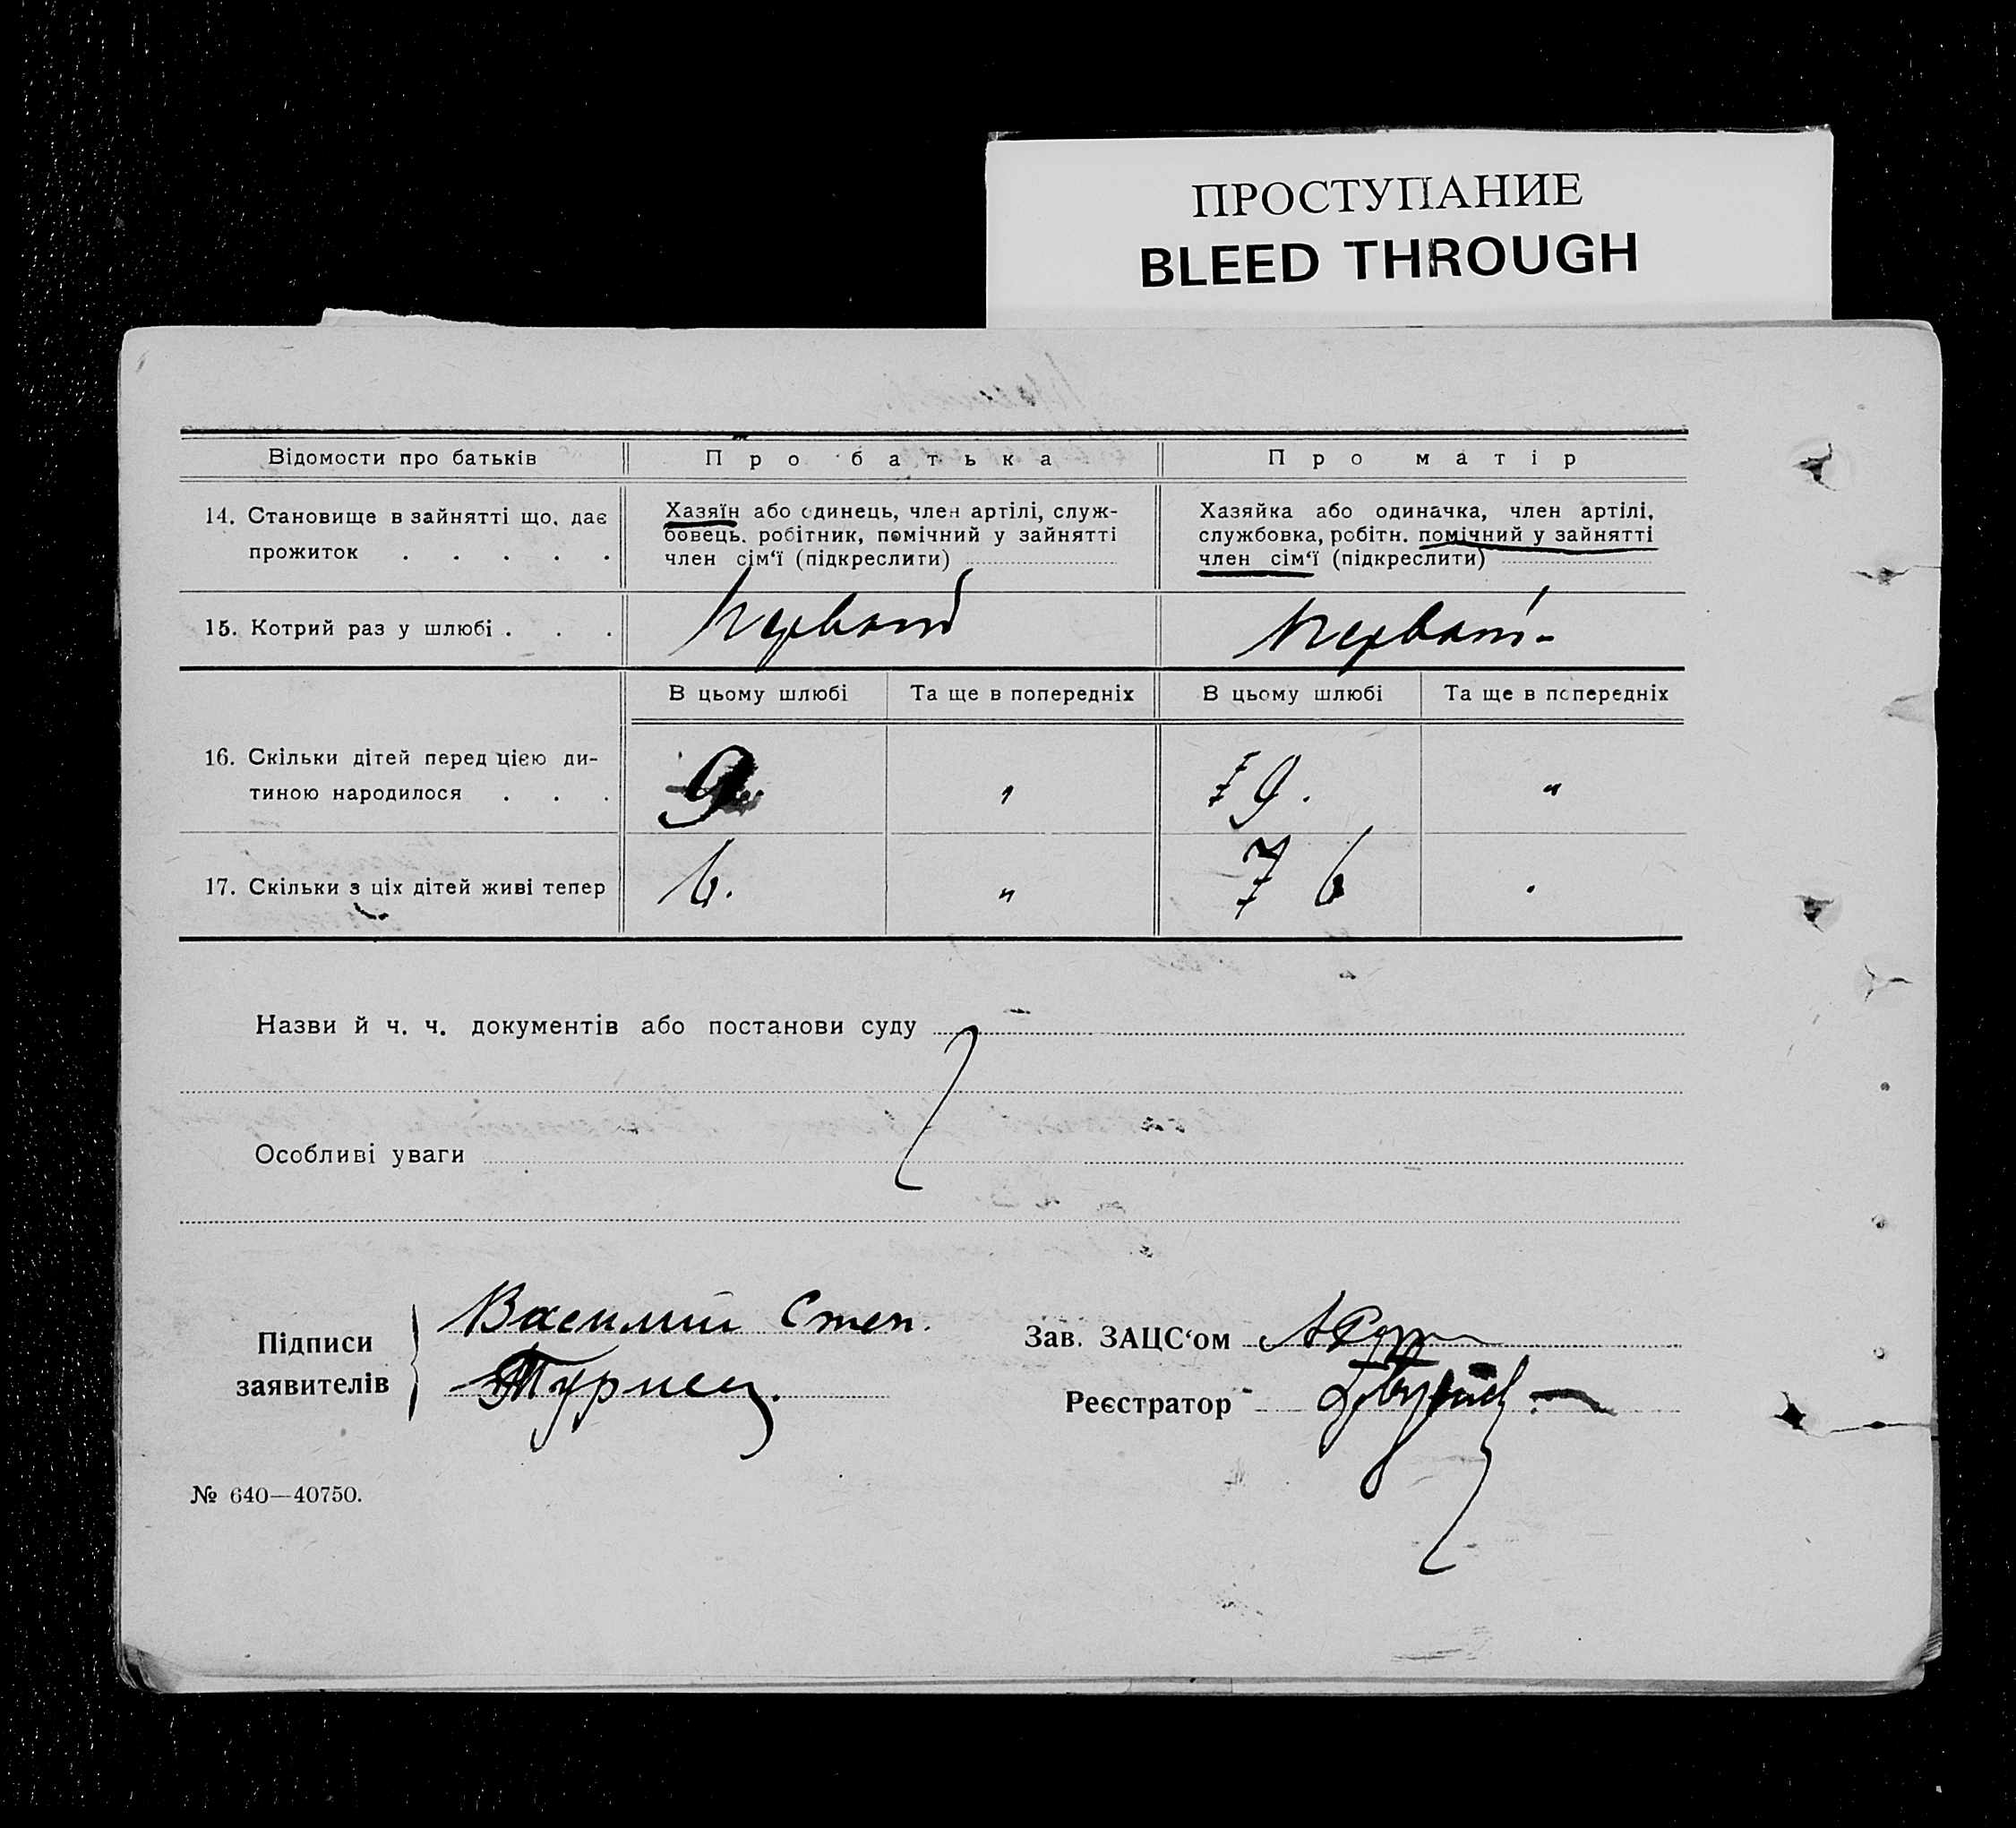 ПРОСТУПАНИЕ
BLEED THROUGH
Відомости про батьків
Про батька
Про матір
14. Становище в зайнятті що, дає
прожиток . . . . .
Хазяїн або одинець, член артілі, служ-
бовець, робітник, помічний у зайнятті
член сім‘ї (підкреслити)
Хазяйка або одиначка, член артілі,
службовка, робітн. помічний у зайнятті
член сім‘ї (підкреслити)
15. Котрий раз у шлюбі . . .
В цьому шлюбі
Та ще в попередніх
В цьому шлюбі
Та ще в попередніх
16. Скільки дітей перед цією ди-
тиною народилося . . .
9
"
9.
"
17. Скільки з ціх дітей живі тепер
6.
"
7 6
Назви й ч. ч. документів або постанови суду
Особливі уваги
Підписи
заявителів
Василий Степ.
Зав. ЗАЦС‘ом
Реєстратор
№ 640—40750.